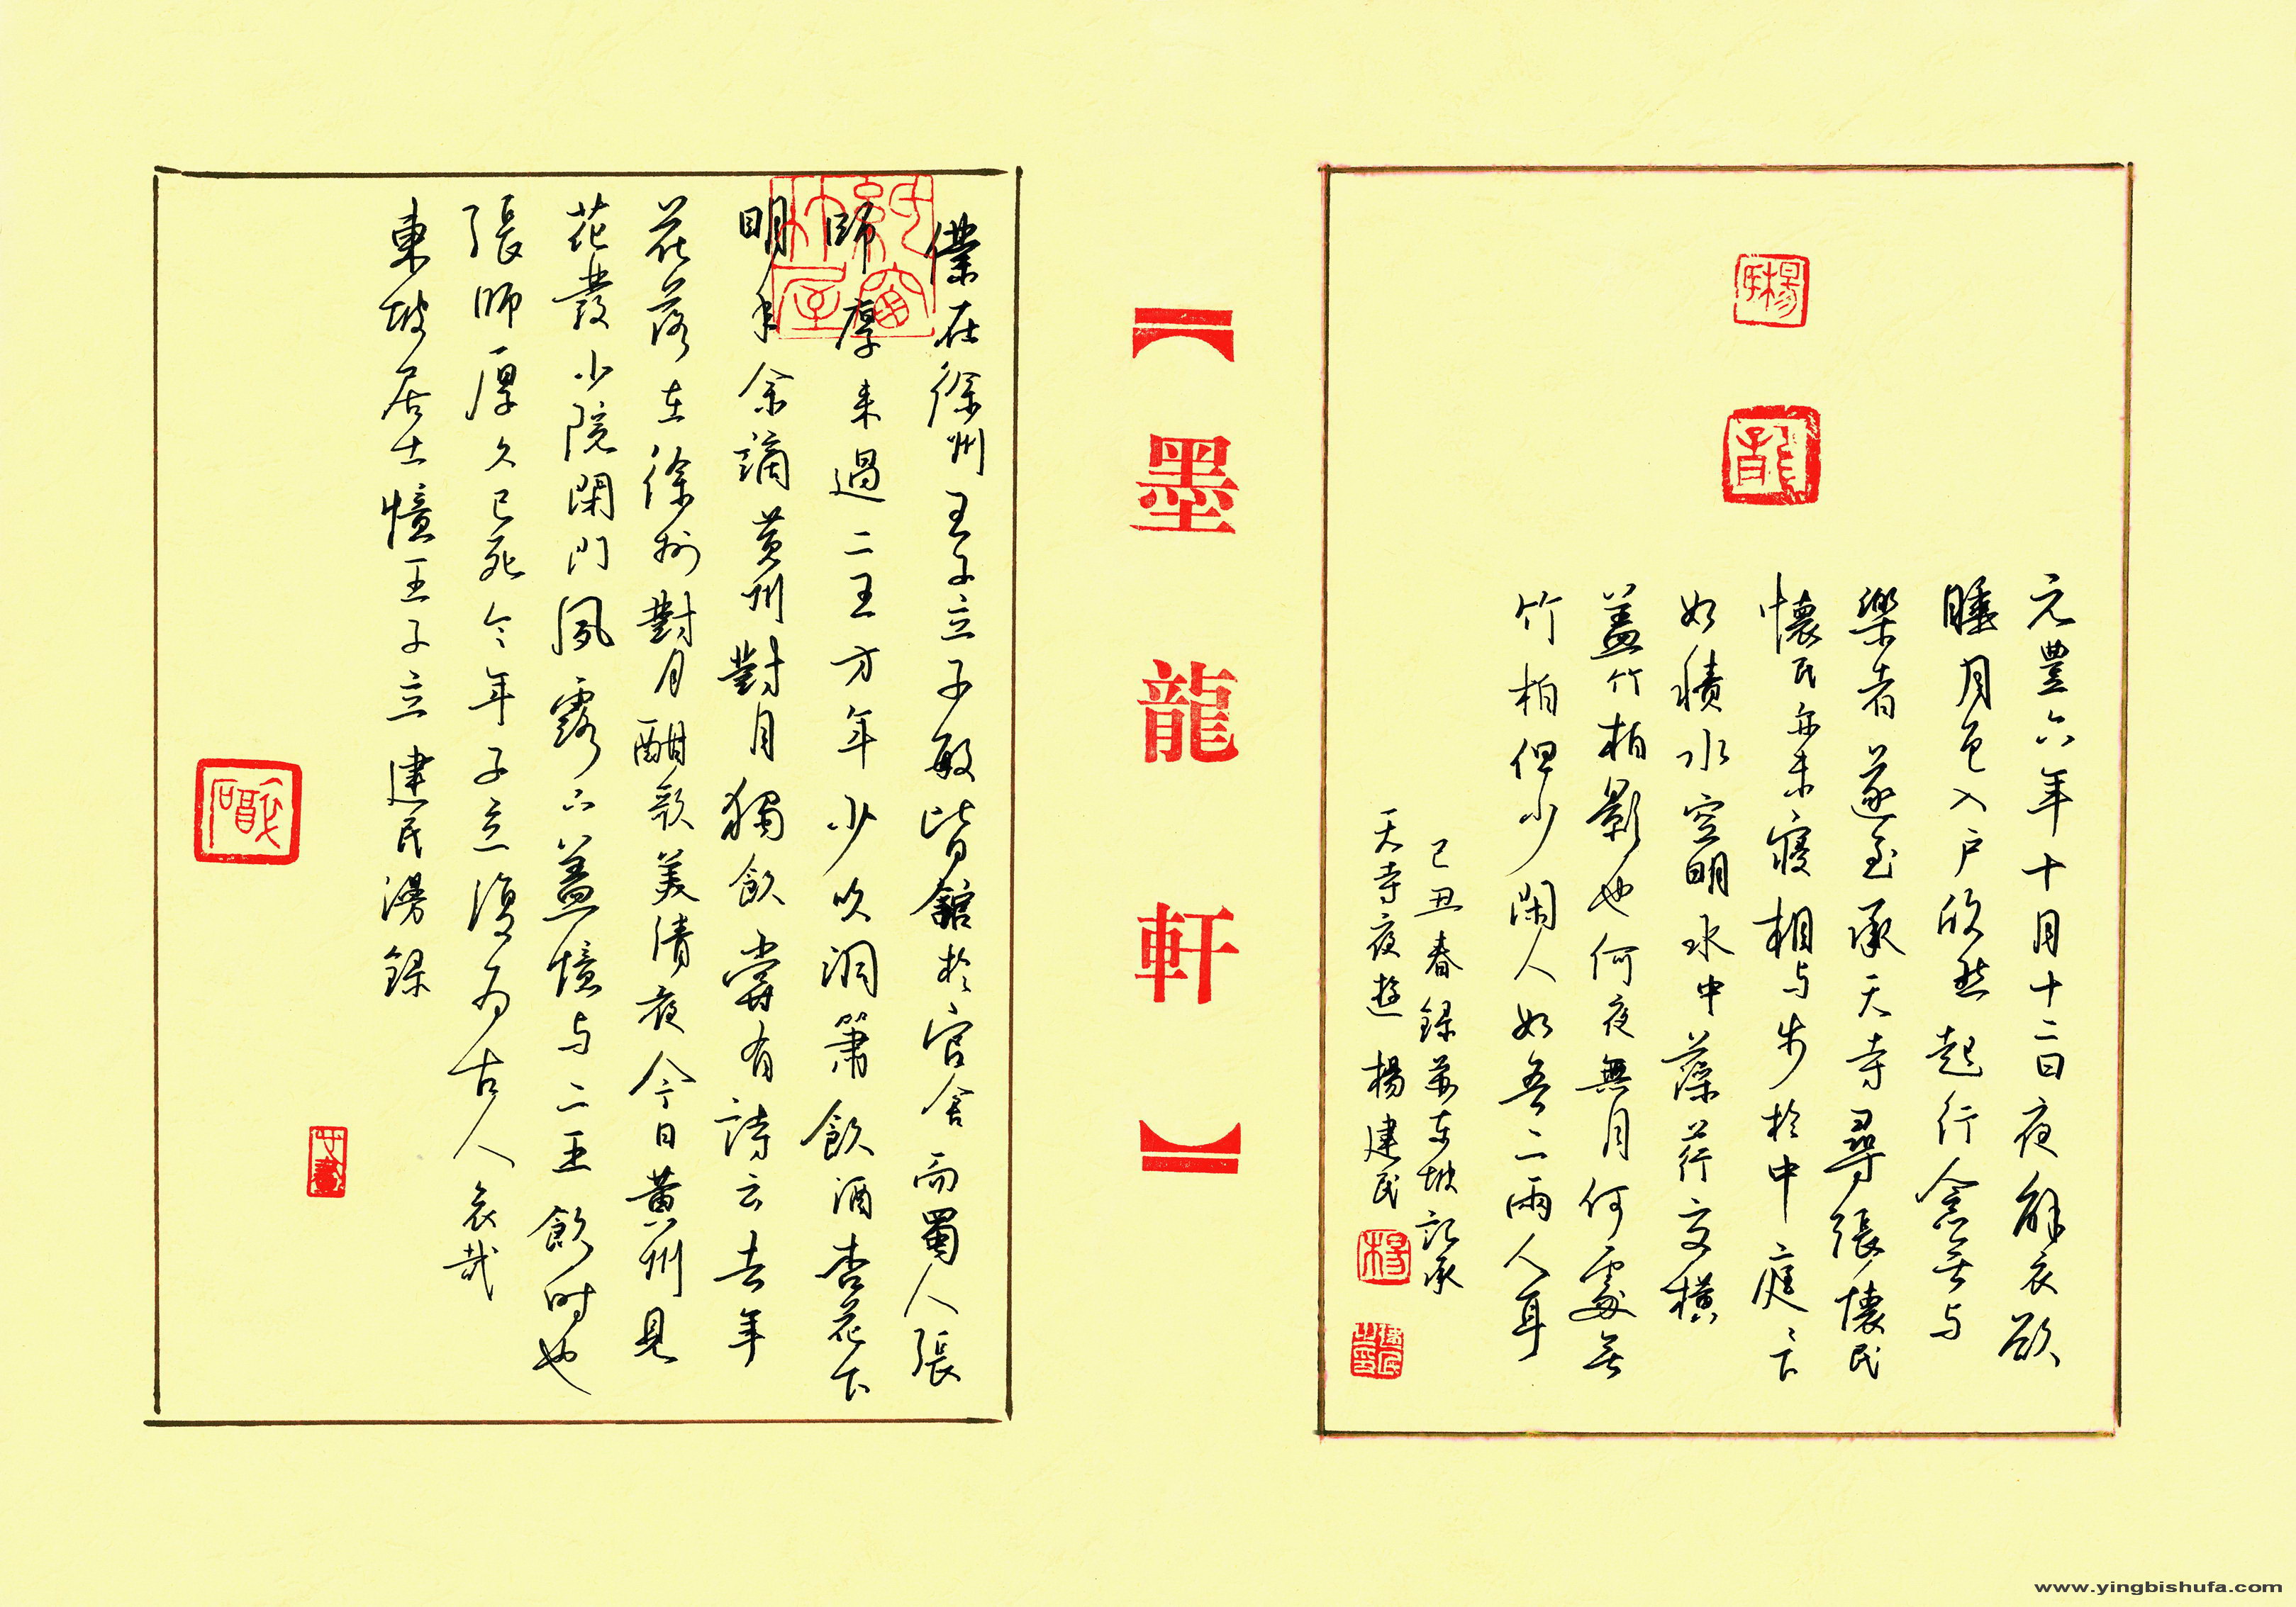 元豐六年十月十二日夜解衣欲
睡月色入户欣然起行念無与
樂者遂至承天寺尋張懷民
懷民亦未寝相与步於中庭庭下
如積水空明水中藻荇交横
盖竹柏影也何夜無月何處無
竹柏但少閑人如吾二兩人耳
己丑春録蘇东坡記承
天寺夜遊 楊建民
楊
【墨龍軒】
僕在徐州王子立子敏皆舘於官舍而蜀人張
師厚来過二王方年少吹洞箫飲酒杏花下
明年余謫黄州對月獨飲嘗有詩云去年
花落在徐州對月酣歌美清夜今日黄州見
花發小院閉門風露下盖憶与二王飲时也
張师厚久已死今年子立復为古人哀哉
東坡居士憶王子立 建民湯録
www.yingbishufa.com